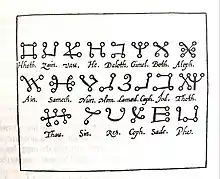 Hheth. Zain. Vau. He. Daleth. Gimel. Beth. Aleph.
Ain. Samech. Nun. Mem. Lamed. Caph. Jod. Theth.
Thau. Sin. Res. Coph. Sade. Phe.